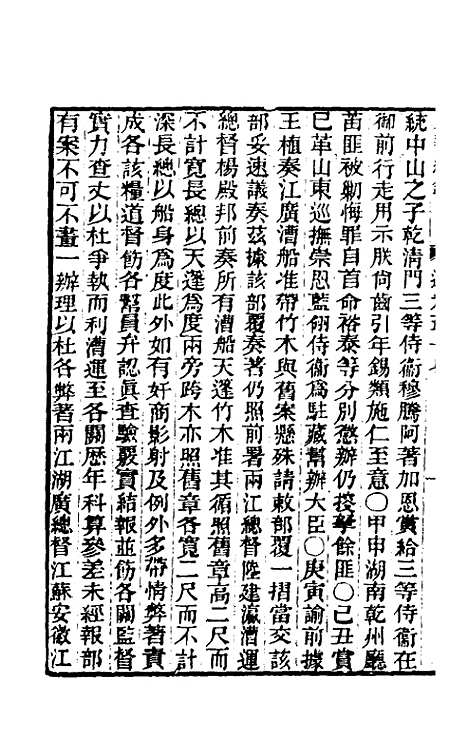 統中山之子乾淸門三等侍衞穆騰阿著加恩賞給三等侍衞在
御前行走用示朕尙齒引年錫類施仁至意〇甲申湖南乾州廳
苗匪被勦悔罪自首命裕泰等分別懲辦仍搜拏餘匪〇己丑賞
已革山東巡撫崇恩藍翎侍衞爲駐藏幫辦大臣〇庚寅諭前據
王植奏江廣漕船准帶竹木與舊案懸殊請敕部覆一摺當交該
部妥速議奏茲據該部覆奏著仍照前署兩江總督陸建瀛漕運
總督楊殿邦前奏所有漕船天篷竹木准其循照舊章高二尺而
不計寬長總以天篷爲度兩旁跨木亦照舊章各寬二尺而不計
深長總以船身爲度此外如有奸商影射及例外多帶情弊著責
成各該糧道督飭各幫員弁認眞查驗覈實結報並飭各關監督
實力查丈以杜爭執而利漕運至各關歷年科算參差未經報部
有案不可不畫一辦理以杜各弊著兩江湖廣總督江蘇安徽江